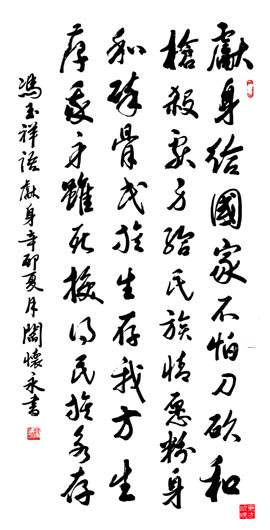 獻身給國家不怕刀砍和
槍殺献身給民族情愿粉身
和碎骨民族生存我方生
存我身雖死換得民族永存
馮玉祥語獻身辛卯夏月懷永書